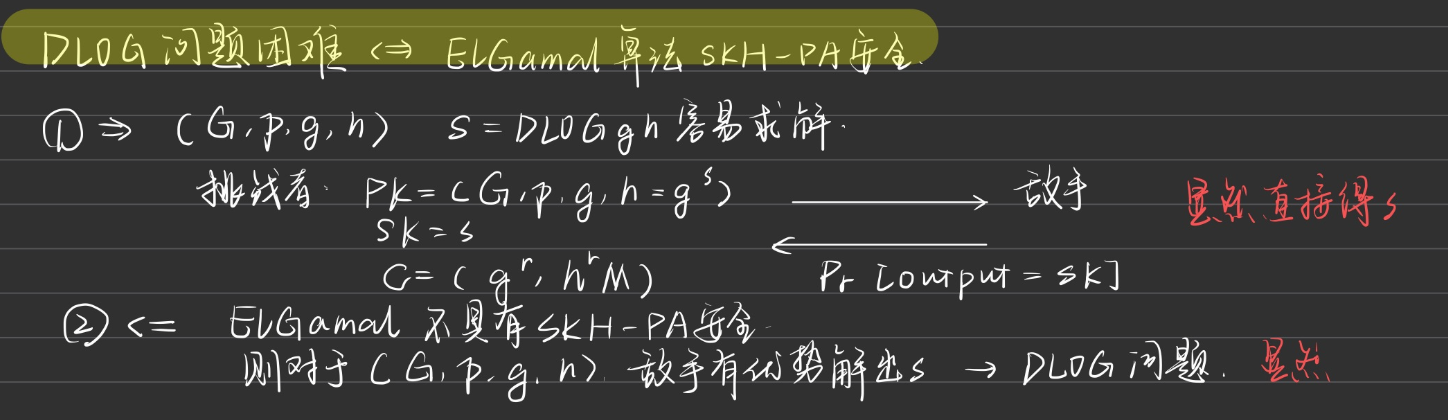 DLOG问题困难 <=> ELGamal算法 SKH-PA安全.
① => (G,p,g,h) s=DLOGgh 容易求解.
挑战者: PK=(G,p,g,h=g^s) 敌手 显然直接得s
SK=s
C=(g^r, h^rM) Pr[output=SK]
② <= ELGamal 不具有SKH-PA安全.
则对于(G,p,g,h), 敌手有优势解出s → DLOG问题. 显然